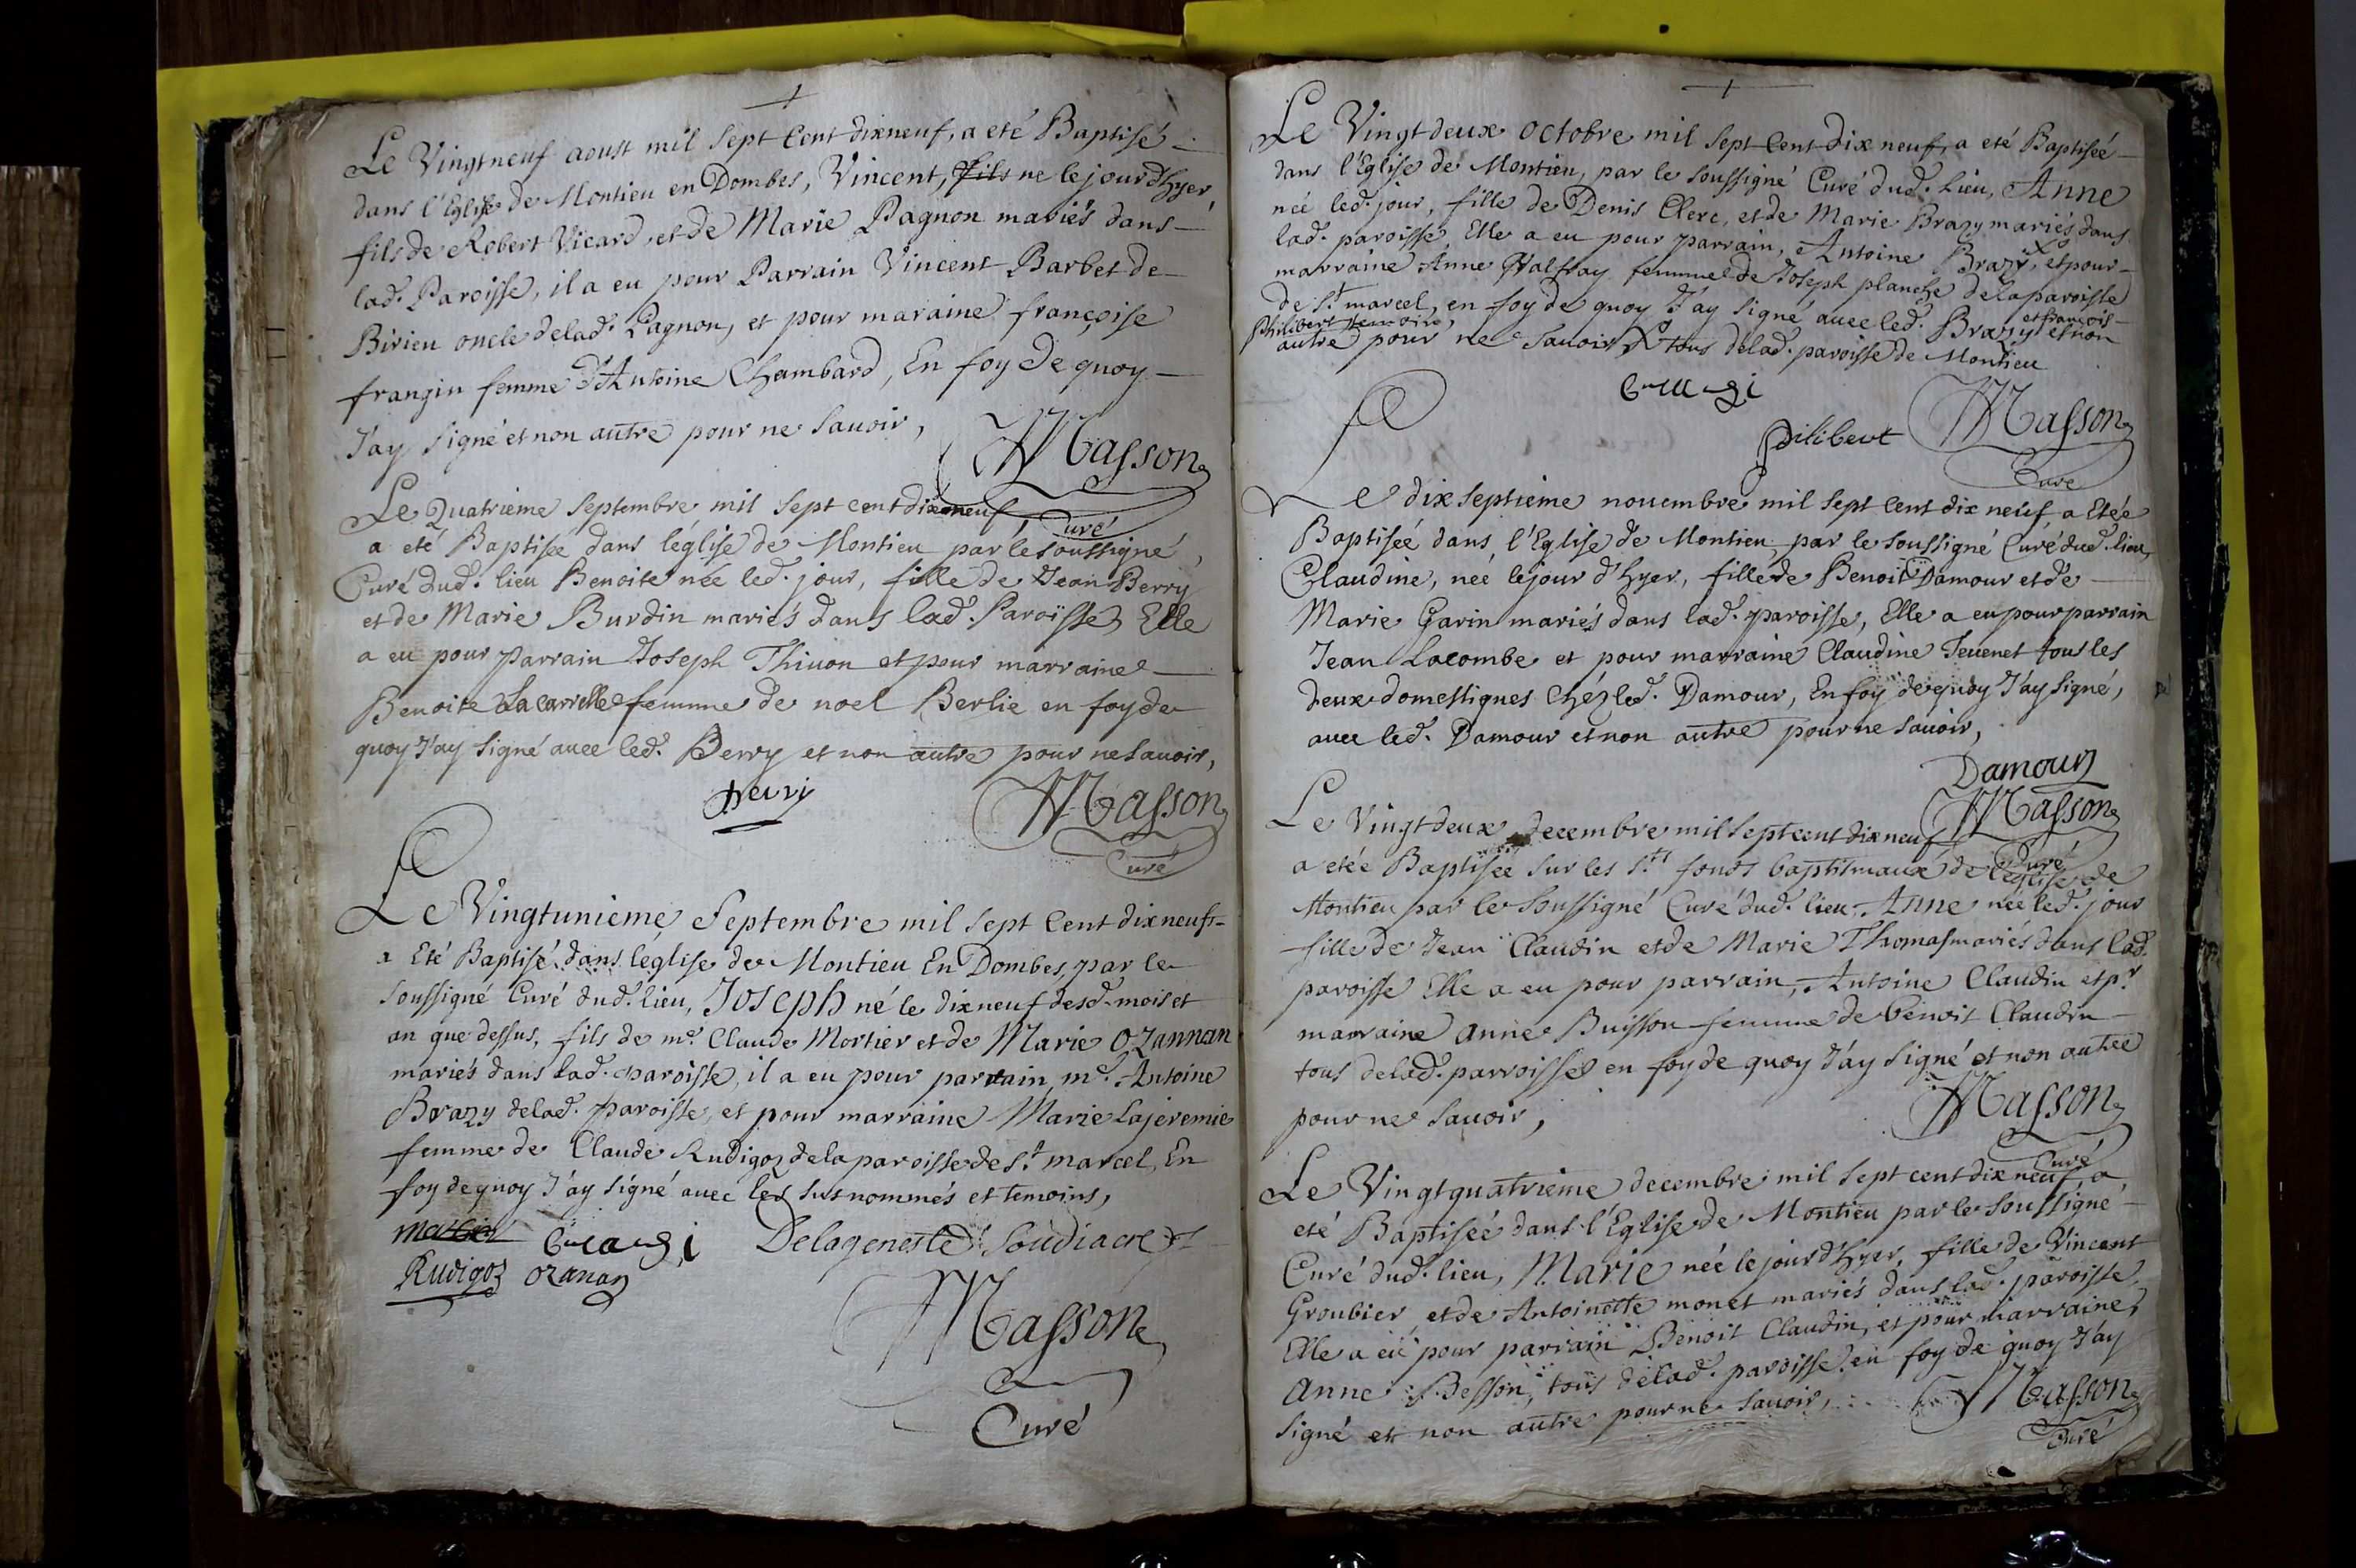 Le Vingtneuf aoust mil sept Cent dixneuf, a eté Baptisé
dans l'Eglise de Montieu en Dombes, Vincent, fils ne le jour d'hyer,
fils de Robert Vicard, et de Marie Pagnon mariés dans
lad. Paroisse, il a eu pour Parrain Vincent Barbet de
Birieu oncle delad. Pagnon, et pour maraine françoise
frangin femme d'Antoine Chambard, En foy de quoy
J'ay signé et non autre pour ne savoir,
Masson
Curé
Le Quatrieme Septembre mil sept cent dixneuf,
a eté Baptisée dans l'église de Montieu par le soussigné,
Curé dud. lieu Benoite née led. jour, fille de Jean Berry
et de Marie Burdin mariés dans lad. Paroisse, Elle
a eu pour Parrain Joseph Thivon et pour marraine
Benoite Lacarrelle femme de noel Berlie en foy de
quoy J'ay signé avec led. Berry et non autre pour ne savoir,
Masson
Curé
Le Vingtunieme Septembre mil sept Cent dixneuf
a Eté Baptisé dans l'église de Montieu En Dombes, par le
soussigné Curé dud. lieu, Joseph né le dixneuf desd. mois et
an que dessus, fils de me. Claude Mortier et de Marie Ozannan
mariés dans lad. paroisse, il a eu pour parrain, me. Antoine
Brazy delad. paroisse, et pour marraine Marie Lajeremie
femme de Claude Rudigoz de la paroisse de St. marcel, En
foy de quoy J'ay signé avec les susnommés et temoins,
Delageneste Soudiacre
Rudigoz ozanan
Masson
Curé
Le Vingt deux octobre mil sept Cent dix neuf, a eté Baptisée
dans l'Eglise de Montieu, par le soussigné Curé dud. Lieu, Anne
née led. jour, fille de Denis Clerc, et de Marie Brazy mariés dans
lad. paroisse, Elle a eu pour parrain, Antoine Brazy, et pour
marraine Anne femme de Joseph planche de la paroisse
de St. marcel, en foy de quoy J'ay signé avec led. Brazy et françois
Philibert et non
autre pour ne savoir, X tous delad. paroisse de Montieu
Pilibert Masson
Curé
Le dix septieme novembre mil sept Cent dix neuf a Etée
Baptisée dans l'Eglise de Montieu, par le soussigné Curé dud. lieu,
Claudine, née le jour d'hyer, fille de Benoit Damour et de
Marie Garin mariés dans lad. paroisse, Elle a eu pour parrain
Jean Lacombe et pour marraine Claudine Tevenet tous les
deux domestiques chéz led. Damour, En foy de quoy J'ay signé,
avec led. Damour et non autre pour ne savoir,
Damour
Masson
Curé
Le Vingt deux decembre mil sept cent dix neuf
a etée Baptisée sur les Sts. fonds baptismaux de l'église de
Montieu par le soussigné Curé dud. lieu, Anne née led. jour
fille de Jean Claudin et de Marie Thomas mariés dans lad.
paroisse Elle a eu pour parrain, Antoine Claudin et pr.
marraine anne Buisson femme de benoit Claudin
tous delad. parroisse en foy de quoy J'ay signé et non autre
pour ne savoir,
Masson
Curé
Le Vingt quatrieme decembre mil sept cent dix neuf, a
eté Baptisée dans l'Eglise de Montieu par le soussigné
Curé dud. lieu, Marie née le jour d'hyer, fille de Vincent
Groubier, et de Antoinette monet mariés dans lad. paroisse,
Elle a eu pour parrain Benoit Claudin, et pour marraine,
Anne Besson, tous delad. paroisse en foy de quoy J'ay
signé et non autre pour ne savoir,
Masson
Curé